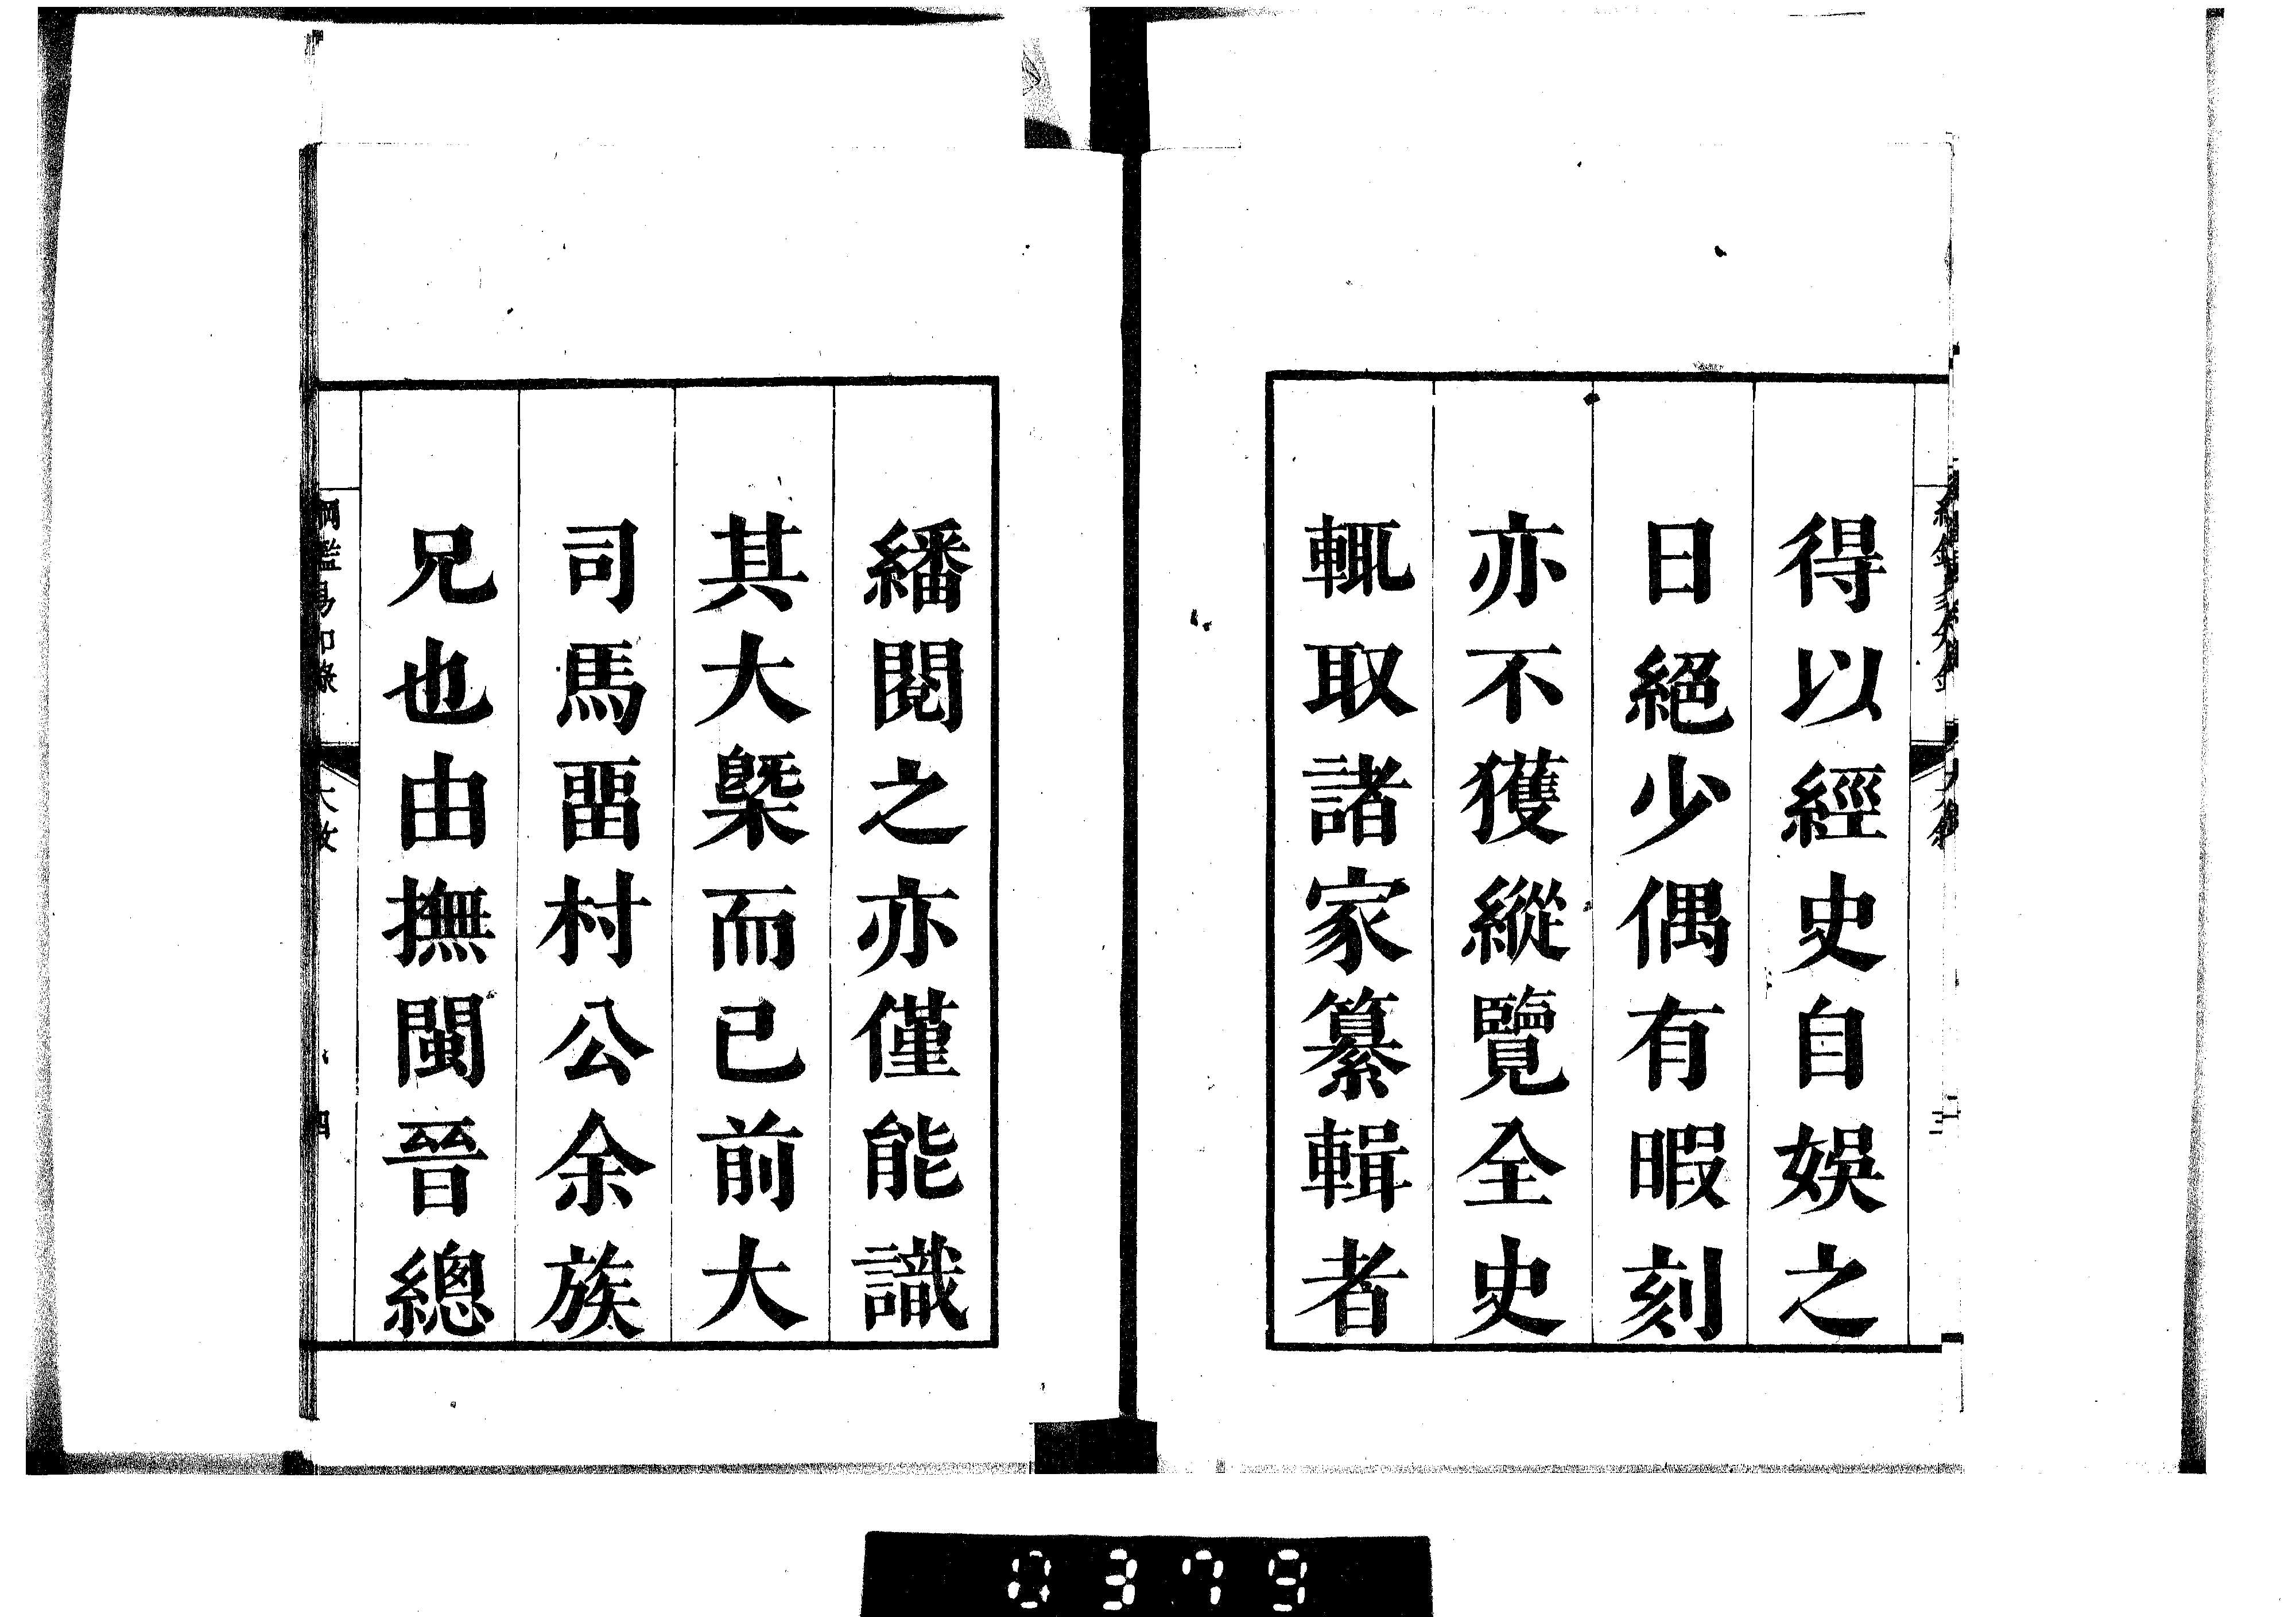 得以經史自娛之
日絕少偶有暇刻
亦不獲縱覽全史
輒取諸家纂輯者
繙閱之亦僅能識
其大槩而已前大
司馬畱村公余族
兄也由撫閩晉總
綱鑑易知錄
四
0379